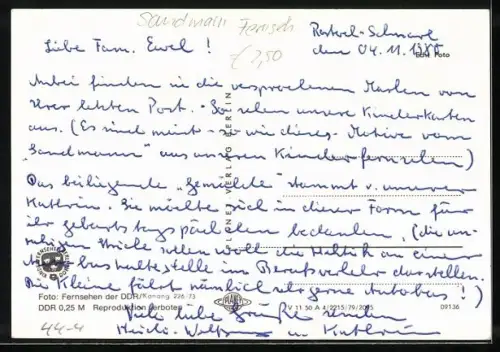 Sandmann Fernseh
€ 2,50
den 04. 11. 1985
Echt Foto
Liebe Fam. Ewel !
Anbei finden Sie die versprochenen Marken von
Ihrer letzten Post. So sehen unsere Kinderkarten
aus. (Es sind meist so wie diese, Motive vom
"Sandmann" aus unserem Kinderfernsehen)
Das beiliegende "Gemälde" stammt v. unserer
Kathrin. Sie möchte sich in dieser Form für
ihr Geburtstagspäckchen bedanken, (die
Striche sollen wohl die Hektik an einer
Autobushaltestelle im Berufsverkehr darstellen.
Die Kleine fährt nämlich sehr gerne Autobus!)
PLANET-VERLAG BERLIN
Foto: Fernsehen der DDR/ 226/73
DDR 0,25 M Reproduktion verboten
PLANET
V 11 50 A 4/2215/79/
09136
Viele liebe Grüße
Heidi u. Kathrin
44-4